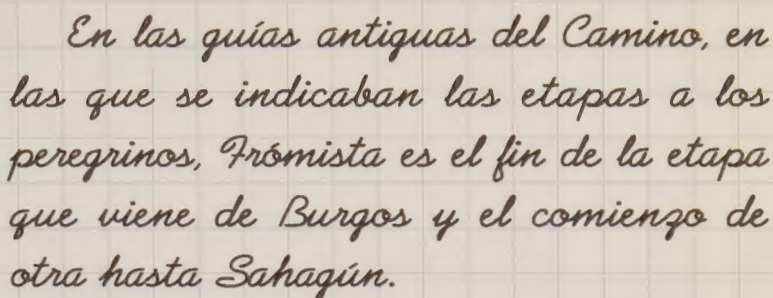 En las guías antiguas del Camino, en
las que se indicaban las etapas a los
peregrinos, Frómista es el fin de la etapa
que viene de Burgos y el comienzo de
otra hasta Sahagún.